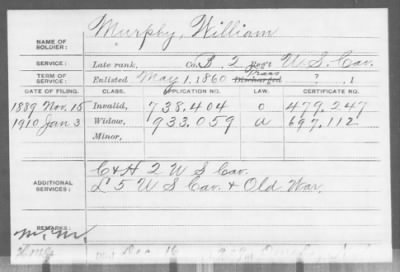 Murphy, William
NAME OF SOLDIER:
SERVICE: Late rank, Co. B, 2 Reg't U S Cav.
TERM OF SERVICE: Enlisted May 1, 1860 Discharged Trans ?, 1
DATE OF FILING. CLASS. APPLICATION NO. LAW. CERTIFICATE NO.
1889 Nov. 15 Invalid, 738.404 O 479.247
1910 Jan 3 Widow, 933.059 a 697.112
Minor,
C & H 2 U S Cav.
ADDITIONAL SERVICES: L 5 U S Cav. & Old War.
REMARKS: M. M.
Dec 16